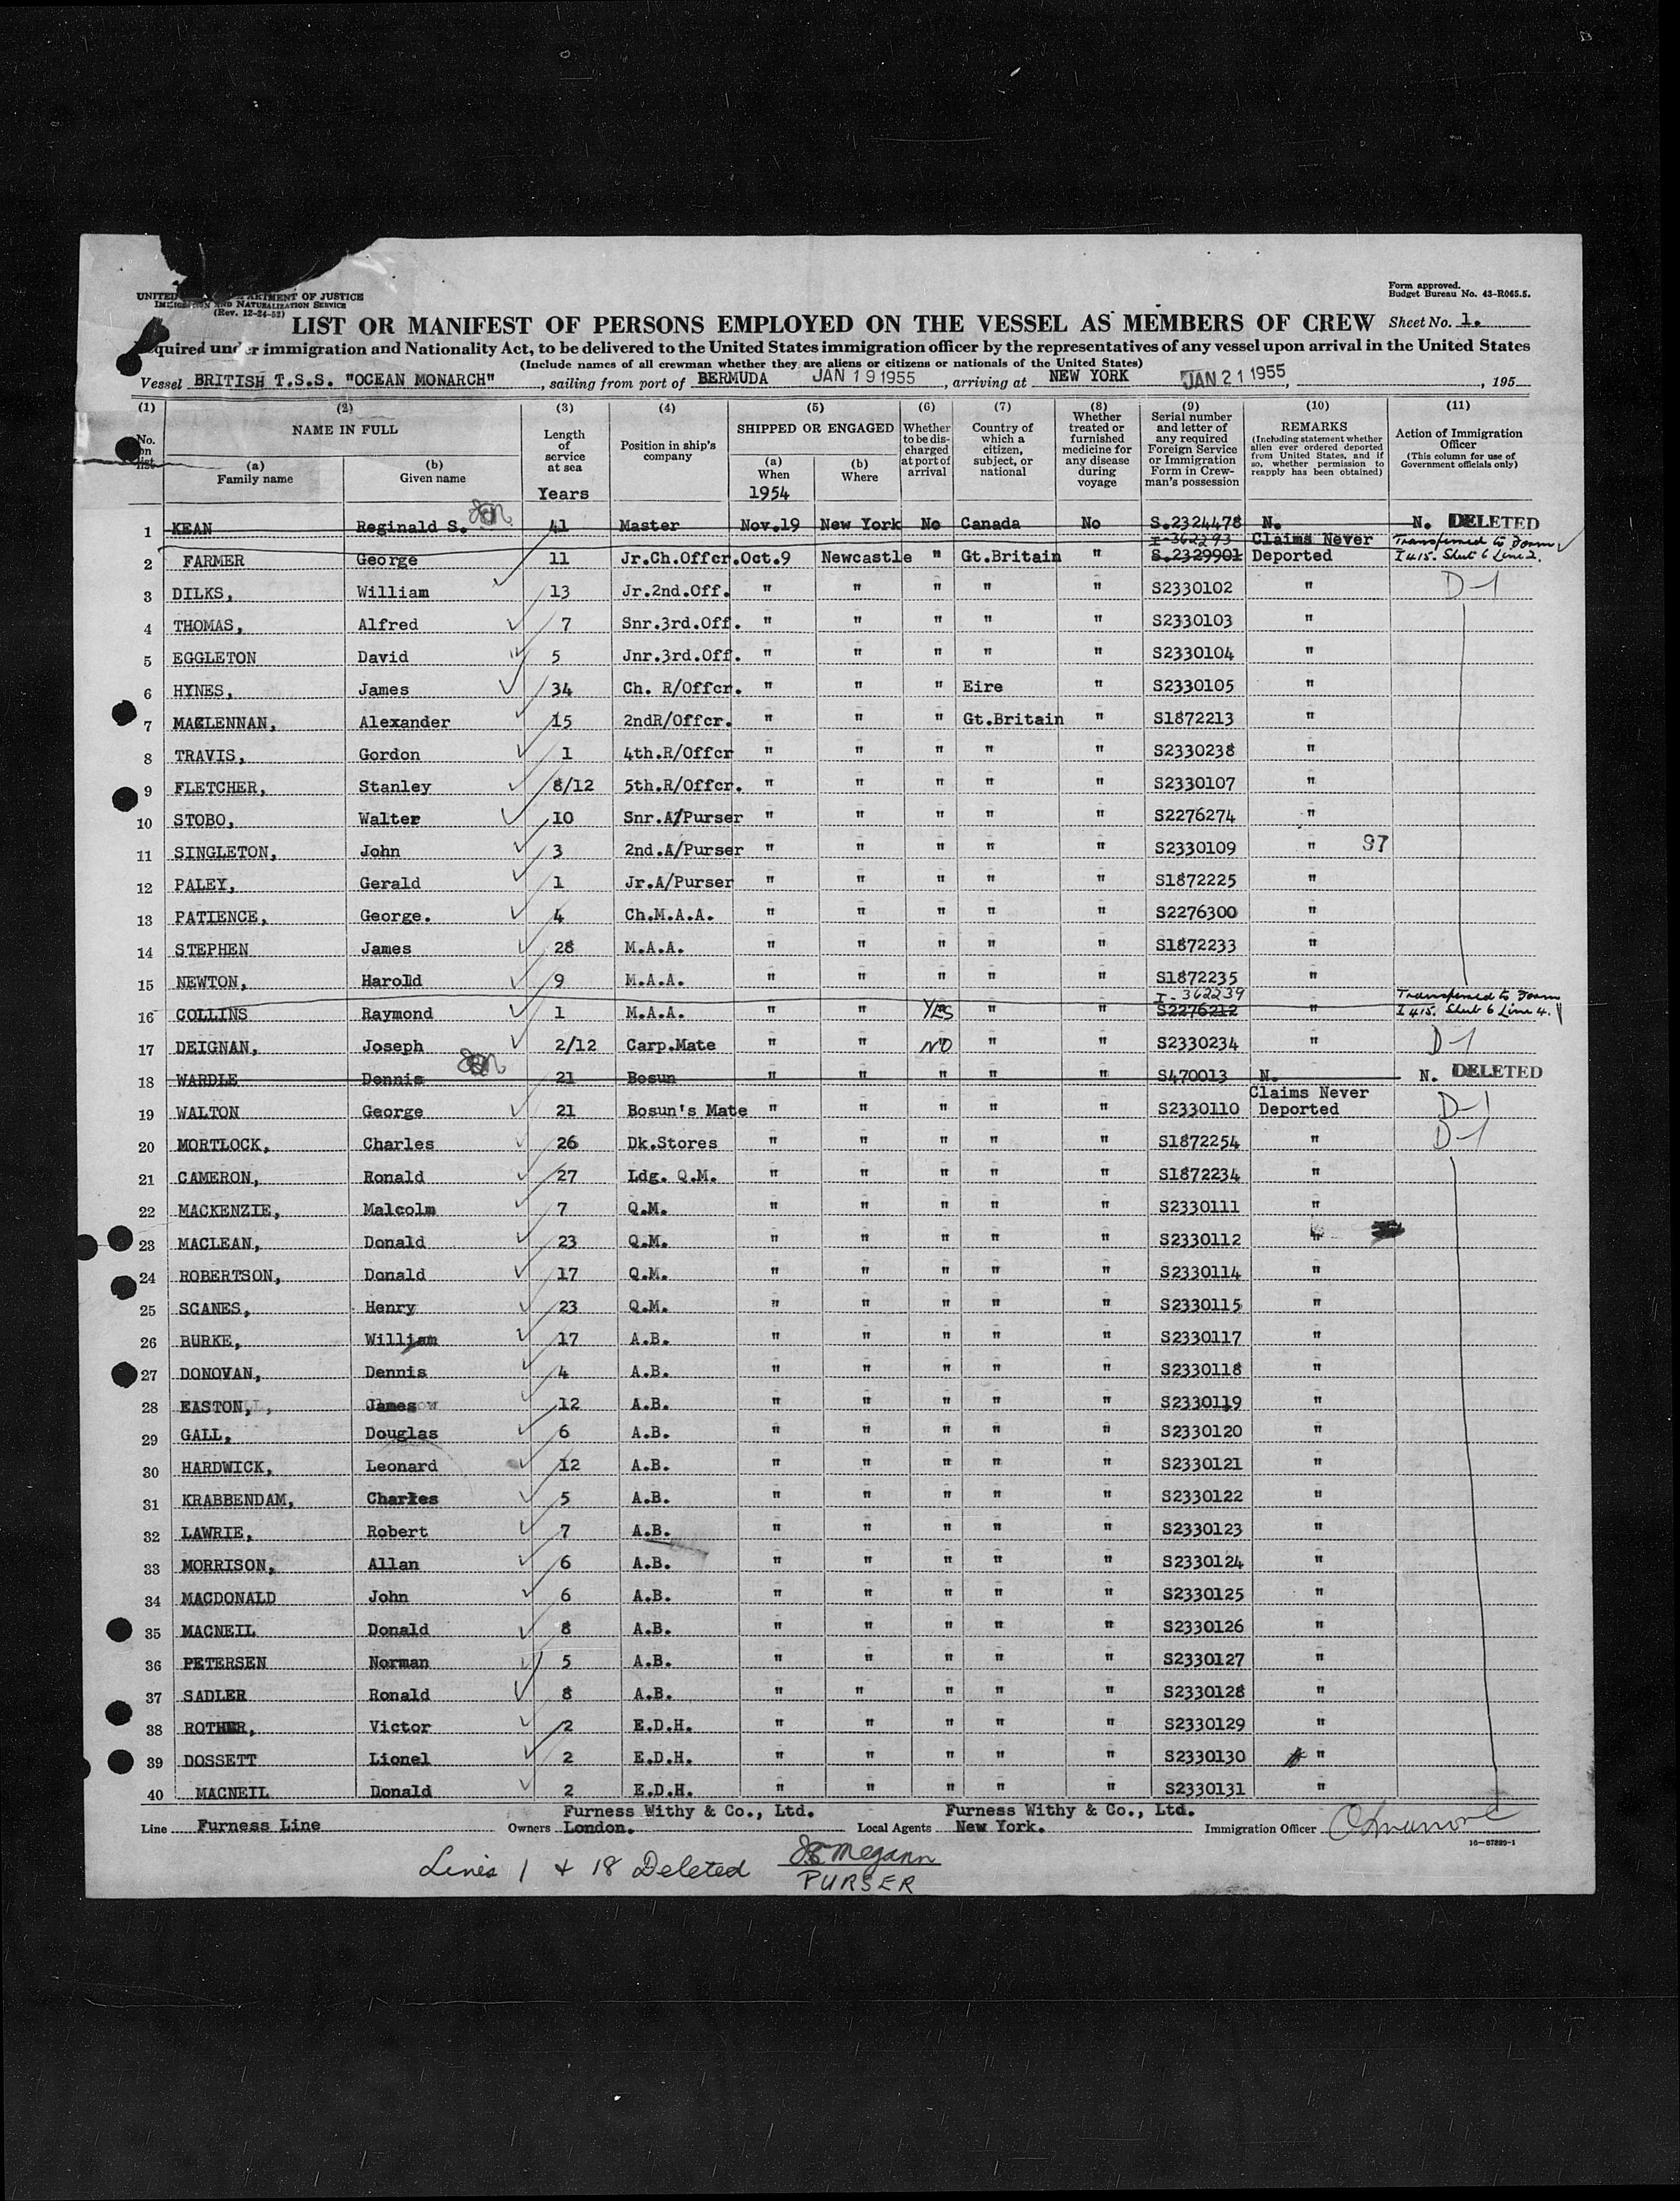 Form approved.
Budget Bureau No. 43-R065.5.
UNITED DEPARTMENT OF JUSTICE
IMMIGRATION AND NATURALIZATION SERVICE
(Rev. 12-24-52)
LIST OR MANIFEST OF PERSONS EMPLOYED ON THE VESSEL AS MEMBERS OF CREW Sheet No. 1.
quired under immigration and Nationality Act, to be delivered to the United States immigration officer by the representatives of any vessel upon arrival in the United States
(Include names of all crewman whether they are aliens or citizens or nationals of the United States)
Vessel BRITISH T.S.S. "OCEAN MONARCH", sailing from port of BERMUDA JAN 19 1955, arriving at NEW YORK JAN 21 1955, 195
(1) (2) (3) (4) (5) (6) (7) (8) (9) (10) (11)
No. on list. NAME IN FULL (a) Family name (b) Given name Length of service at sea Years Position in ship's company SHIPPED OR ENGAGED (a) When 1954 (b) Where Whether to be discharged at port of arrival Country of which a citizen, subject, or national Whether treated or furnished medicine for any disease during voyage Serial number and letter of any required Foreign Service or Immigration Form in Crewman's possession REMARKS (Including statement whether alien ever ordered deported from United States, and if so, whether permission to reapply has been obtained) Action of Immigration Officer (This column for use of Government officials only)
1 KEAN Reginald S. 41 Master Nov.19 New York No Canada No S.2324478 N. N. DELETED
I-362293 Claims Never Transferred to Form
2 FARMER George 11 Jr.Ch.Offcr. Oct.9 Newcastle " Gt.Britain " S.2329901 Deported I 415. Sheet 6 Line 2.
3 DILKS, William 13 Jr.2nd.Off. " " " " " S2330102 " D-1
4 THOMAS, Alfred 7 Snr.3rd.Off. " " " " " S2330103 "
5 EGGLETON David 5 Jnr.3rd.Off. " " " " " S2330104 "
6 HYNES, James 34 Ch. R/Offcr. " " " Eire " S2330105 "
7 MACLENNAN, Alexander 15 2ndR/Offcr. " " " Gt.Britain " S1872213 "
8 TRAVIS, Gordon 1 4th.R/Offcr " " " " " S2330238 "
9 FLETCHER, Stanley 8/12 5th.R/Offcr. " " " " " S2330107 "
10 STOBO, Walter 10 Snr.A/Purser " " " " " S2276274 "
11 SINGLETON, John 3 2nd.A/Purser " " " " " S2330109 " 97
12 PALEY, Gerald 1 Jr.A/Purser " " " " " S1872225 "
13 PATIENCE, George. 4 Ch.M.A.A. " " " " " S2276300 "
14 STEPHEN James 28 M.A.A. " " " " " S1872233 "
15 NEWTON, Harold 9 M.A.A. " " " " " S1872235 "
I-362239 Transferred to Form
16 COLLINS Raymond 1 M.A.A. " " YES " " S2276212 " I 415. Sheet 6 Line 4.
17 DEIGNAN, Joseph 2/12 Carp.Mate " " NO " " S2330234 " D-1
18 WARDLE Dennis 21 Bosun " " " " " S470013 N. N. DELETED
Claims Never
19 WALTON George 21 Bosun's Mate " " " " " S2330110 Deported D-1
20 MORTLOCK, Charles 26 Dk.Stores " " " " " S1872254 " D-1
21 CAMERON, Ronald 27 Ldg. Q.M. " " " " " S1872234 "
22 MACKENZIE, Malcolm 7 Q.M. " " " " " S2330111 "
23 MACLEAN, Donald 23 Q.M. " " " " " S2330112 "
24 ROBERTSON, Donald 17 Q.M. " " " " " S2330114 "
25 SCANES, Henry 23 Q.M. " " " " " S2330115 "
26 BURKE, William 17 A.B. " " " " " S2330117 "
27 DONOVAN, Dennis 4 A.B. " " " " " S2330118 "
28 EASTON, James 12 A.B. " " " " " S2330119 "
29 GALL, Douglas 6 A.B. " " " " " S2330120 "
30 HARDWICK, Leonard 12 A.B. " " " " " S2330121 "
31 KRABBENDAM, Charles 5 A.B. " " " " " S2330122 "
32 LAWRIE, Robert 7 A.B. " " " " " S2330123 "
33 MORRISON, Allan 6 A.B. " " " " " S2330124 "
34 MACDONALD John 6 A.B. " " " " " S2330125 "
35 MACNEIL Donald 8 A.B. " " " " " S2330126 "
36 PETERSEN Norman 5 A.B. " " " " " S2330127 "
37 SADLER Ronald 8 A.B. " " " " " S2330128 "
38 ROTHER, Victor 2 E.D.H. " " " " " S2330129 "
39 DOSSETT Lionel 2 E.D.H. " " " " " S2330130 "
40 MACNEIL Donald 2 E.D.H. " " " " " S2330131 "
Line Furness Line Owners Furness Withy & Co., Ltd. London. Local Agents Furness Withy & Co., Ltd. New York. Immigration Officer
16-67899-1
Lines 1 & 18 Deleted
PURSER